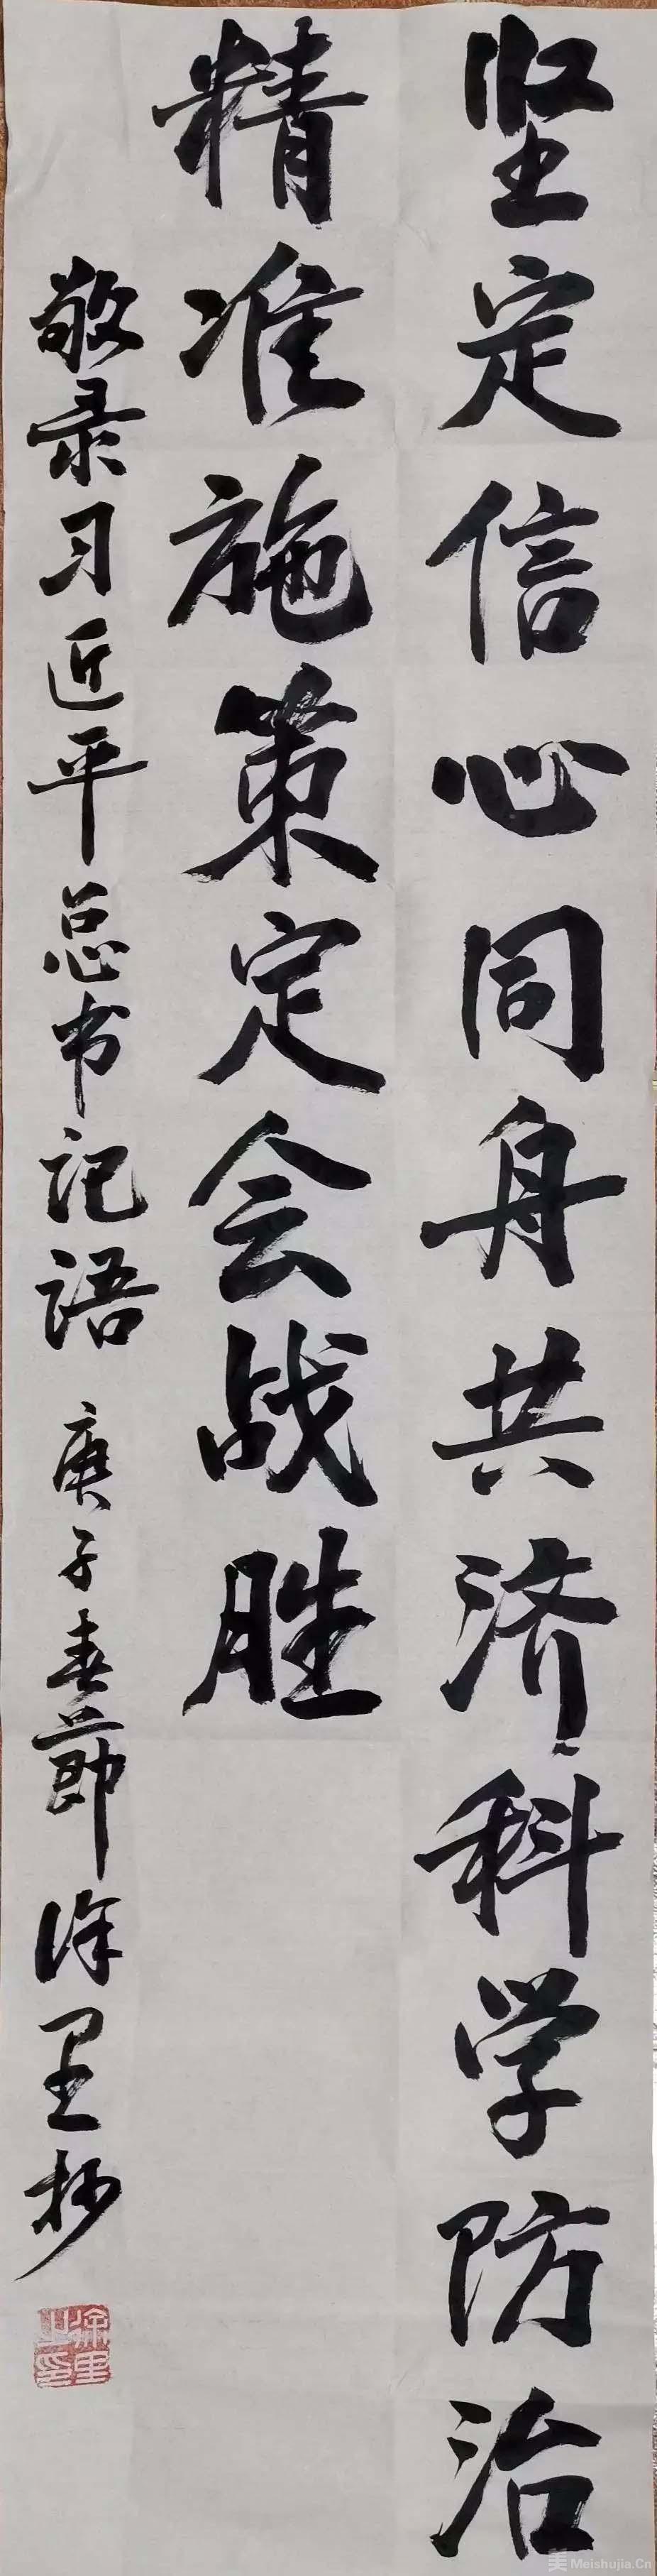 坚定信心同舟共济科学防治
精准施策定会战胜
敬录习近平总书记语 庚子春节 徐里抄
徐里之印
美 Meishujia.Cn